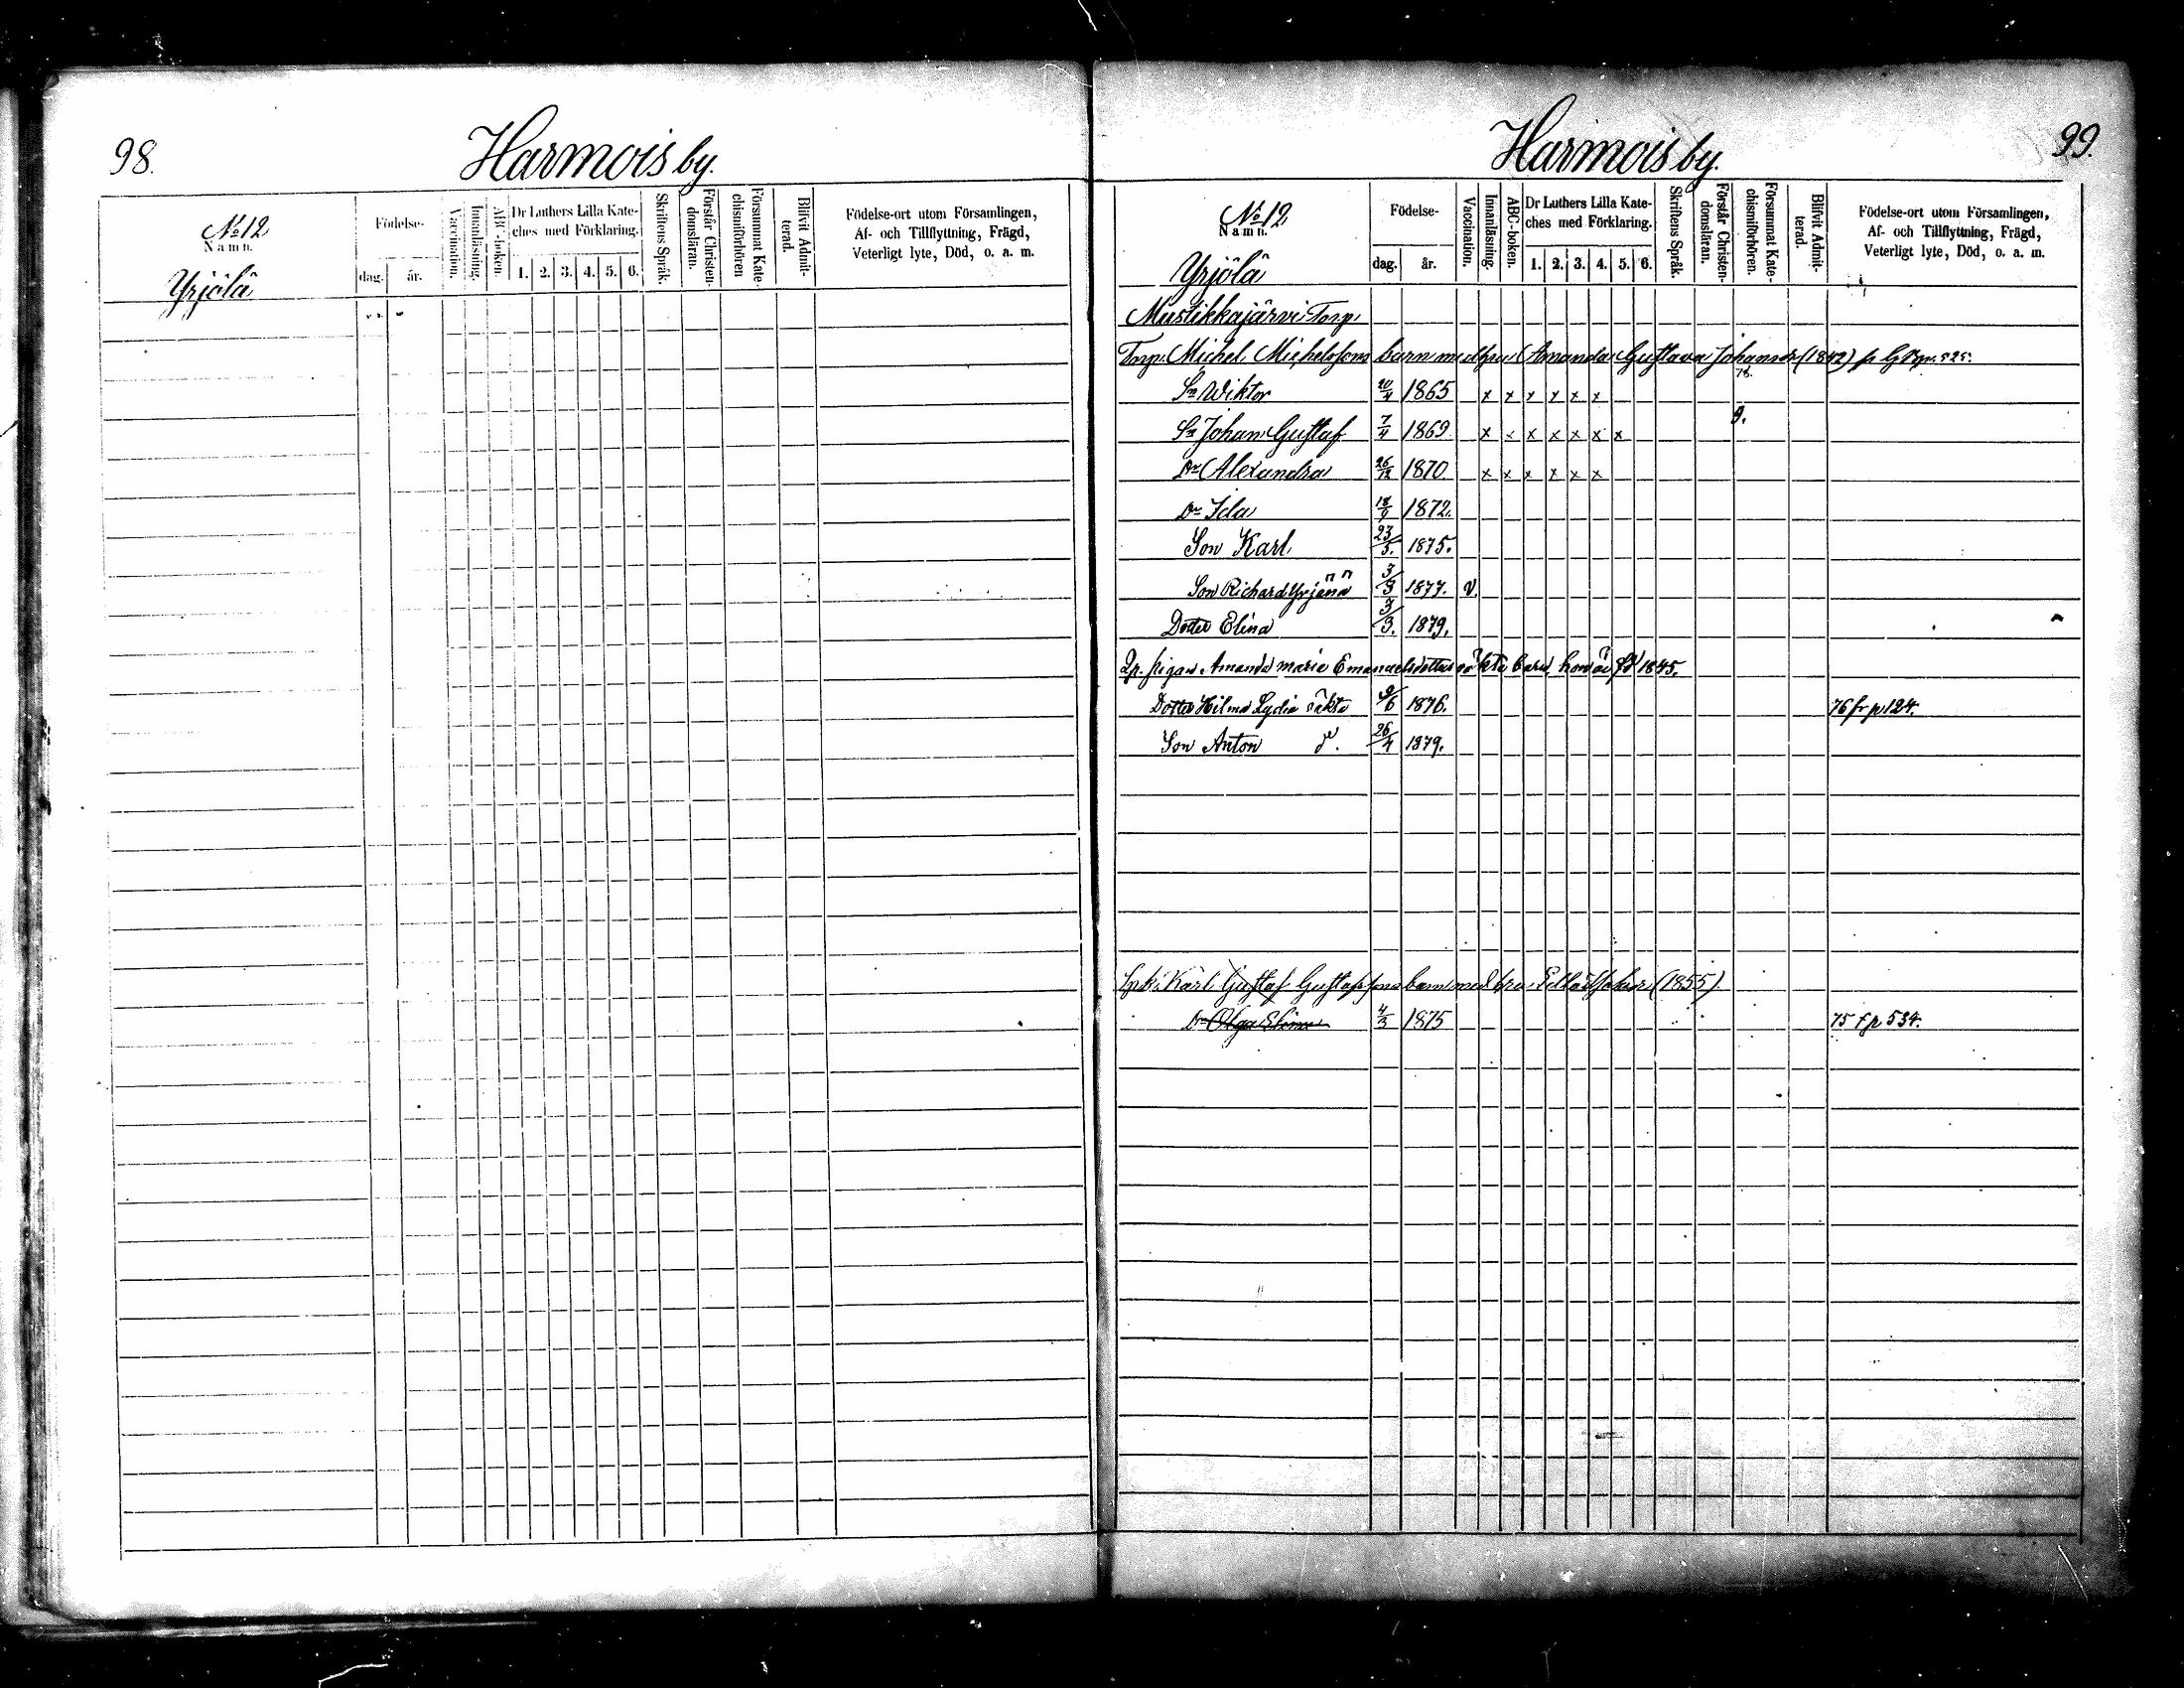 98.
Harmois by.
No 12
Namn.
Yrjölä
Födelse-
dag.
år.
Vaccination.
Innanläsning.
ABC-boken.
Dr Luthers Lilla Kate-
ches med Förklaring.
1. 2. 3. 4. 5. 6.
Skriftens Språk.
Förstår Christen-
domsläran.
Försummat Kate-
chismiförhören
Blifvit Admit-
terad.
Födelse-ort utom Församlingen,
Af- och Tillflyttning, Frägd,
Veterligt lyte, Död, o. a. m.
Harmois by.
99.
No 12.
Namn.
Yrjölä
Födelse-
dag.
år.
Vaccination.
Innanläsning.
ABC-boken.
Dr Luthers Lilla Kate-
ches med Förklaring.
1. 2. 3. 4. 5. 6.
Skriftens Språk.
Förstår Christen-
domsläran.
Försummat Kate-
chismiförhören.
Blifvit Admit-
terad.
Födelse-ort utom Församlingen,
Af- och Tillflyttning, Frägd,
Veterligt lyte, Död, o. a. m.
Mustikkajärvi Torp
Torp. Michel Michelssons barn med hru Amanda Gustava Johansdr (1842)
Sn Wiktor 20/4 1865 x x x x x x
Sn Johan Gustaf 7/4 1869 x x x x x x x
Dr Alexandra 26/12 1870. x x x x x x
Dr Ida 18/9 1872.
Son Karl 23/5. 1875.
Son Richard Yrjänä 3/3 1877. v.
Dotter Elina 3/3. 1879.
pigan Amanda Maria Emanuelsdotters oäkta barn, hon är fd 1845.
Dotter Hilma Lydia oäkta 9/6 1876. 76 fr p 124.
Son Anton do. 26/4 1879.
Karl Gustaf Gustafssons barn med hru (1855)
Dr Olga Elina 4/3 1875 75 f p 534.